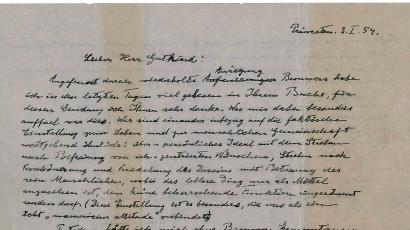 Princeton. 3. I. 54.
Lieber Herr Gutkind!
Anregung
Angefeuert durch wiederholte Brouwers habe
ich in den letzten Tagen viel gelesen in Ihrem Buche, für
dessen Sendung ich Ihnen sehr danke. Was mir dabei besonders
auffiel war dies. Wir sind einander inbezug auf die faktische
Einstellung zum Leben und zur menschlichen Gemeinschaft
weitgehend ähnlich: über-persönliches Ideal mit dem Streben
nach Befreiung von ich-zentrierten Wünschen, Streben nach
Verschönerung und Veredelung des Daseins mit Betonung des
rein Menschlichen, wobei das leblose Ding nur als Mittel
anzusehen ist, dem keine beherrschende Funktion eingeräumt
werden darf. (Diese Einstellung ist es besonders, die uns als ein
echt "unamerican attitude" verbindet)
hätte ich mich ohne Brouwers